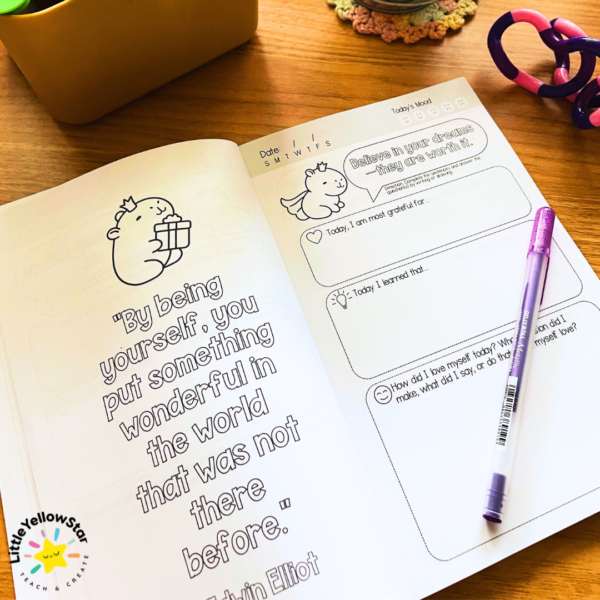 "By being
yourself, you
put something
wonderful in
the world
that was not
there
before."
Edwin Elliot
Today's Mood
Date: / /
S M T W T F S
Believe in your dreams
—they are worth it.
Direction: Complete the sentences and answer the
question(s) by writing or drawing.
Today, I am most grateful for...
Today I learned that...
How did I love myself today? What did I
make, what did I say, or do that myself love?
LittleYellowStar
TEACH & CREATE